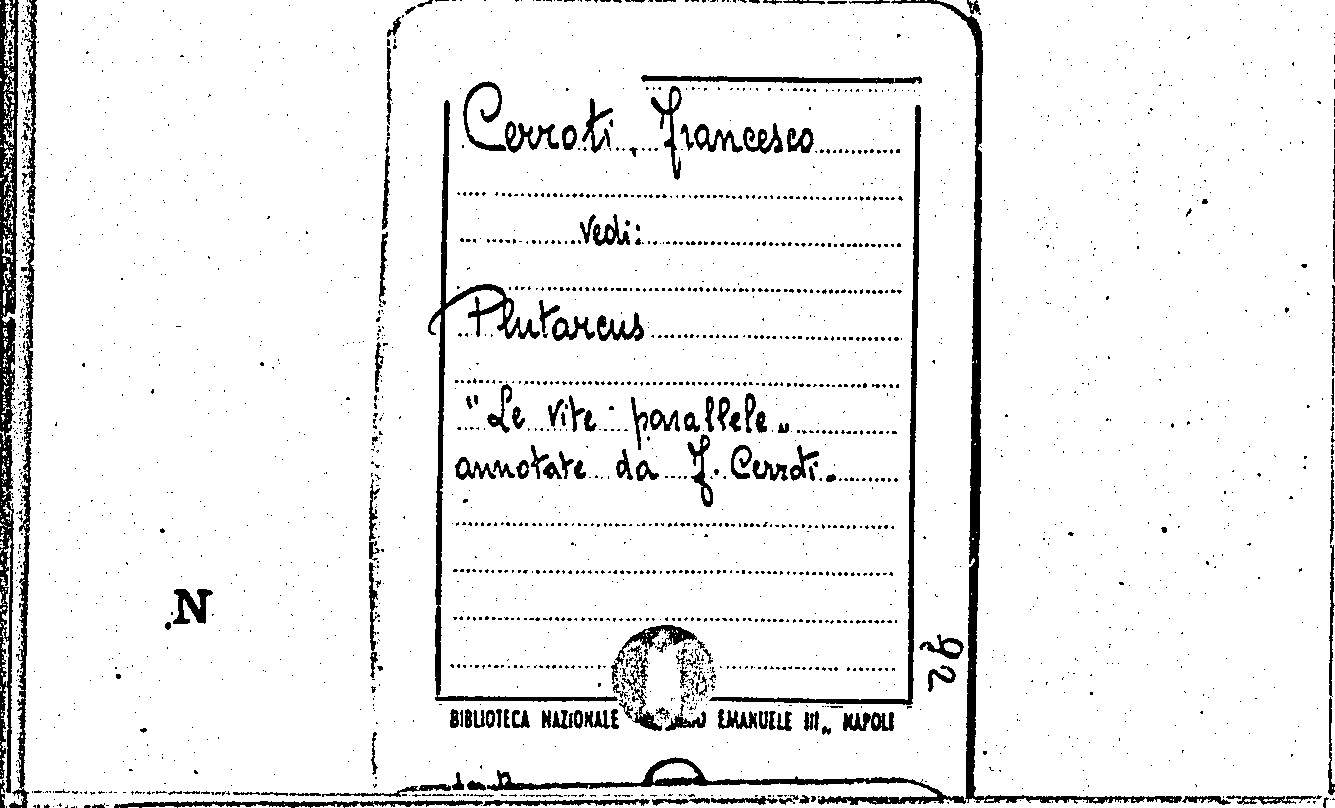 Cerroti, Francesco
vedi:
Plutarcus
"Le vite parallele„
annotate da F. Cerroti.
N
92
BIBLIOTECA NAZIONALE EMANUELE III„ NAPOLI